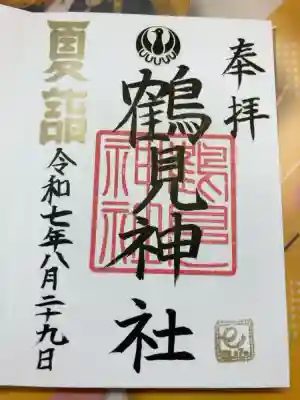 奉拝
鶴見神社
鶴見
神社
夏詣
令和七年八月二十九日